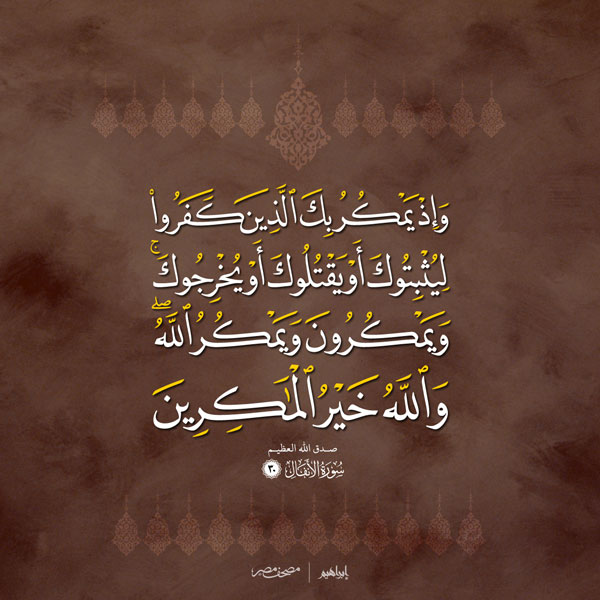 وَإِذْ يَمْكُرُ بِكَ ٱلَّذِينَ كَفَرُوا۟
لِيُثْبِتُوكَ أَوْ يَقْتُلُوكَ أَوْ يُخْرِجُوكَ ۚ
وَيَمْكُرُونَ وَيَمْكُرُ ٱللَّهُ ۖ
وَٱللَّهُ خَيْرُ ٱلْمَـٰكِرِينَ
صدق الله العظيم
سُورَةُ الأَنفَال ٣٠
مصحف مصر | إبراهيم